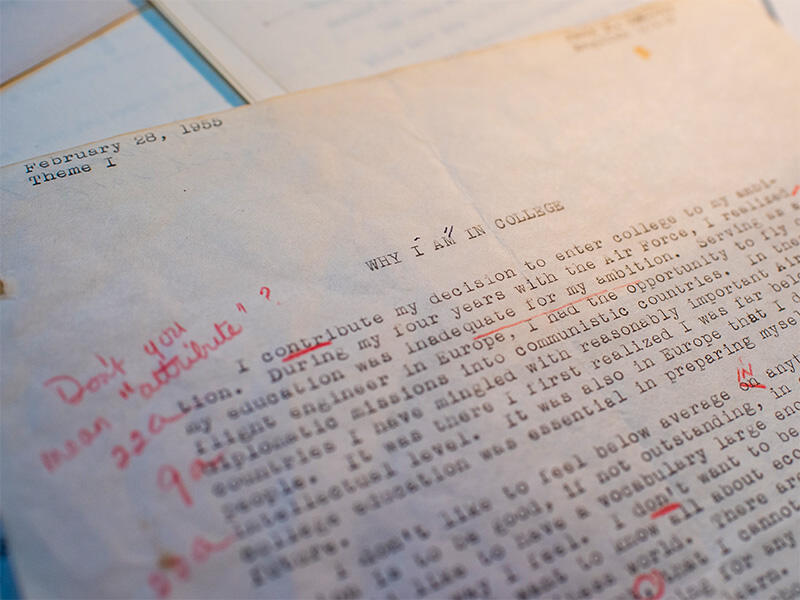 February 28, 1955
Theme I
WHY I AM IN COLLEGE
Don't you
mean "attribute"?
I contribute my decision to enter college to my ambi-
tion. During my four years with the Air Force, I realized
my education was inadequate for my ambition. Serving as a
flight engineer in Europe, I had the opportunity to fly
diplomatic missions into communistic countries. In the
countries I have mingled with reasonably important Air
people. It was there I first realized I was far bel
intellectual level. It was also in Europe that I d
College education was essential in preparing mysel
future.
22a
9a
22a
IN
I don't like to feel below average on anyt
is to be good, if not outstanding, in
like to have a vocabulary large eno
way I feel. I don't want to be
want to know all about eco
ness world. There are
that I cannot
ing for any
learn.